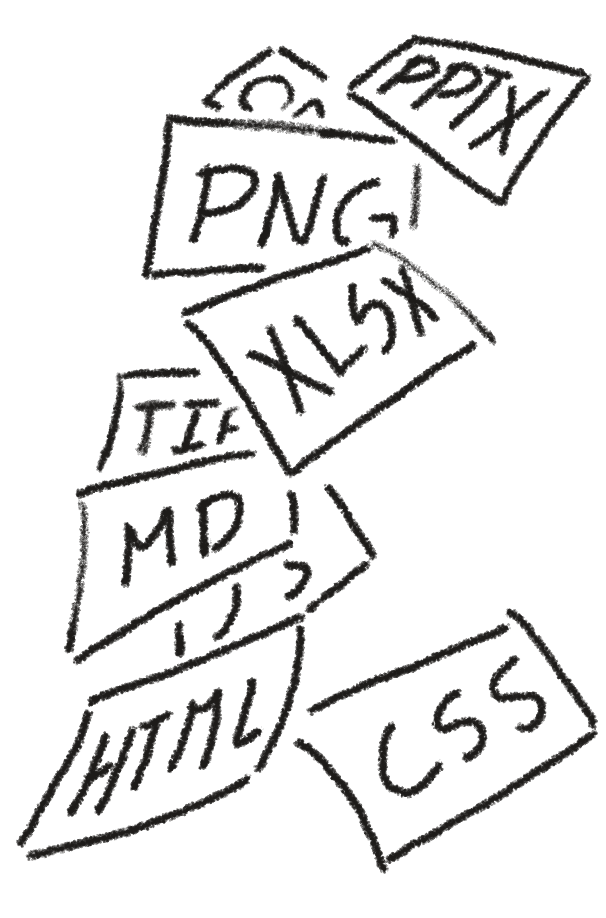 PPTX
PNG
XLSX
TIF
MD
HTML
CSS